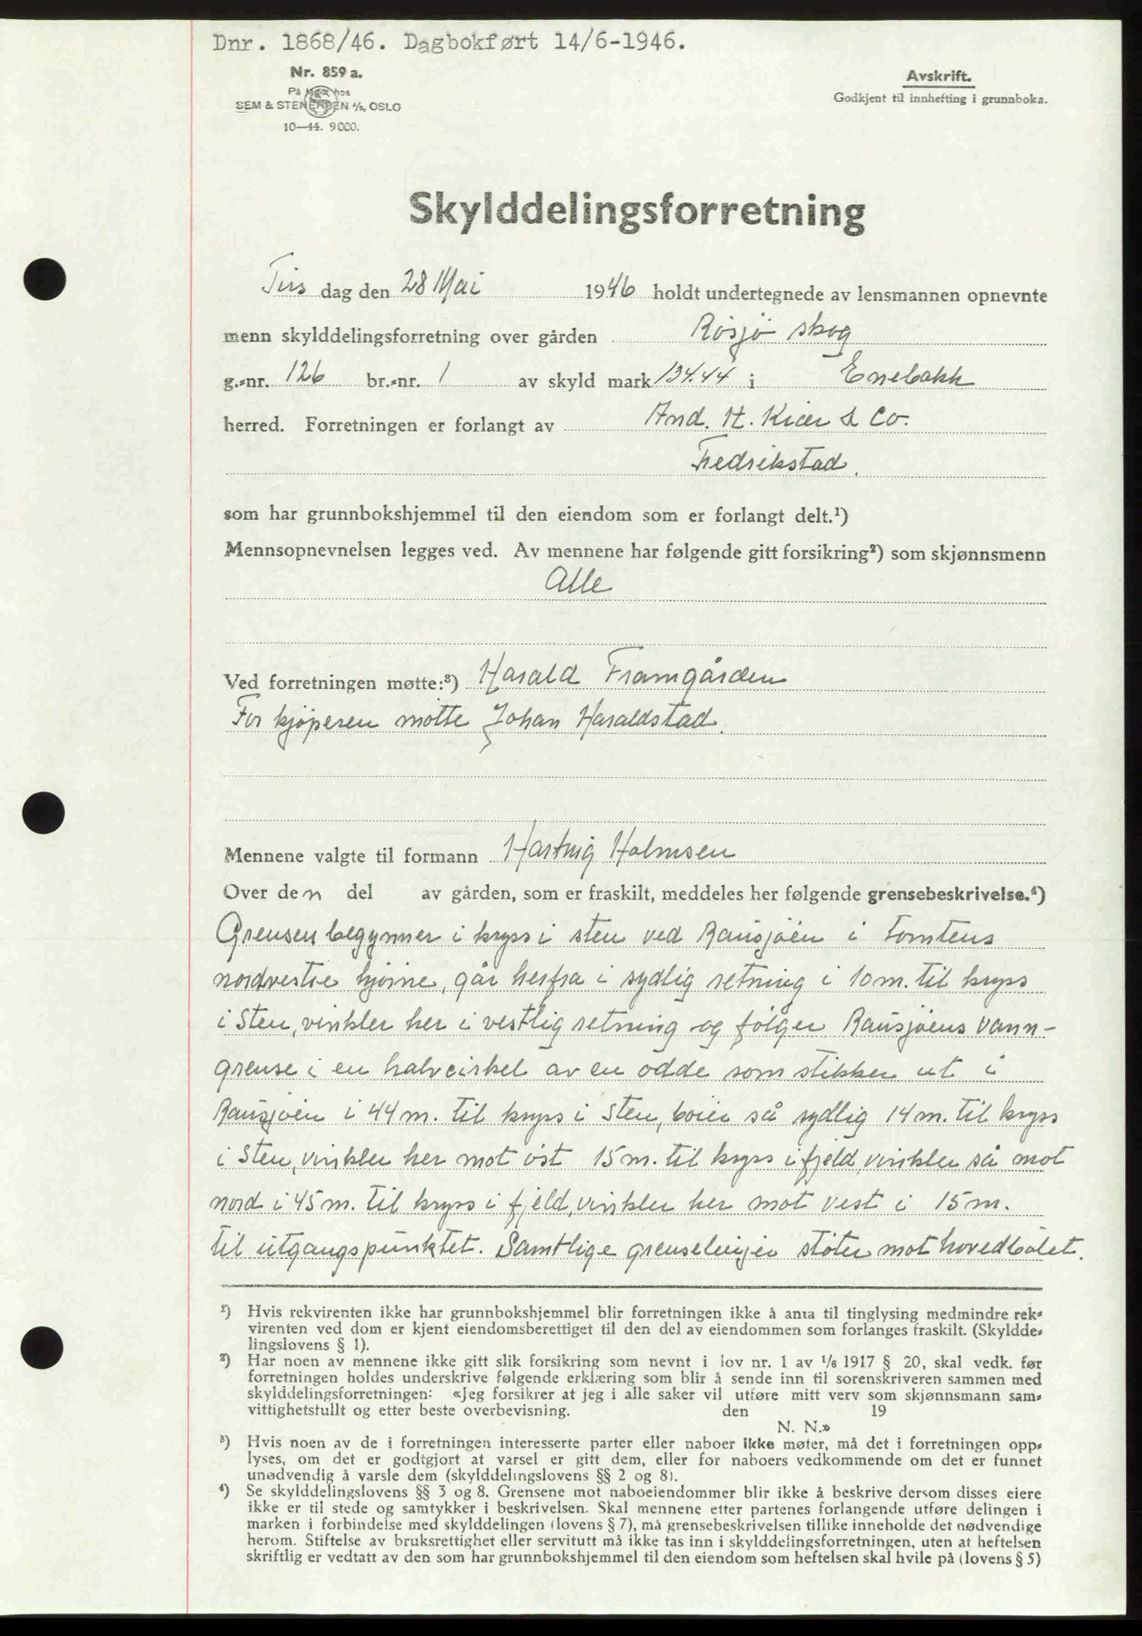 Dnr. 1868/46. Dagbokført 14/6-1946.
Nr. 859 a.
På lager hos
SEM & STENERSEN A/S, OSLO
10—44. 9000.
Avskrift.
Godkjent til innhefting i grunnboka.
Skylddelingsforretning
Tirs dag den 28 Mai 1946 holdt undertegnede av lensmannen opnevnte
menn skylddelingsforretning over gården Rösjö skog
g.-nr. 126 br.-nr. 1 av skyld mark 134.44 i Enebakk
herred. Forretningen er forlangt av And. H. Kiær & Co.
Fredrikstad.
som har grunnbokshjemmel til den eiendom som er forlangt delt.¹)
Mennsopnevnelsen legges ved. Av mennene har følgende gitt forsikring²) som skjønnsmenn
Alle
Ved forretningen møtte:³) Harald Framgården
For kjöperen mötte Johan Haraldstad.
Mennene valgte til formann Hartvig Holmsen
Over den del av gården, som er fraskilt, meddeles her følgende grensebeskrivelse.⁴)
Grensen begynner i kryss i sten ved Rausjöen i tomtens
nordvestre hjörne, går herfra i sydlig retning i 10 m. til kryss
i Sten, vinkler her i vestlig retning og fölger Rausjöens vann-
grense i en halvcirkel av en odde som stikker ut i
Rausjöen i 44 m. til kryss i Sten, böier så sydlig 14 m. til kryss
i Sten, vinkler her mot öst 15 m. til kryss i fjeld, vinkler så mot
nord i 45 m. til kryss i fjeld, vinkler her mot vest i 15 m.
til utgangspunktet. Samtlige grenselinjer stöter mot hovedbölet.
¹) Hvis rekvirenten ikke har grunnbokshjemmel blir forretningen ikke å anta til tinglysing medmindre rek-
virenten ved dom er kjent eiendomsberettiget til den del av eiendommen som forlanges fraskilt. (Skyldde-
lingslovens § 1).
²) Har noen av mennene ikke gitt slik forsikring som nevnt i lov nr. 1 av 1/6 1917 § 20, skal vedk. før
forretningen holdes underskrive følgende erklæring som blir å sende inn til sorenskriveren sammen med
skylddelingsforretningen: «Jeg forsikrer at jeg i alle saker vil utføre mitt verv som skjønnsmann sam-
vittighetsfullt og etter beste overbevisning. den 19
N. N.»
³) Hvis noen av de i forretningen interesserte parter eller naboer ikke møter, må det i forretningen opp-
lyses, om det er godtgjort at varsel er gitt dem, eller for naboers vedkommende om det er funnet
unødvendig å varsle dem (skylddelingslovens §§ 2 og 8).
⁴) Se skylddelingslovens §§ 3 og 8. Grensene mot naboeiendommer blir ikke å beskrive dersom disses eiere
ikke er til stede og samtykker i beskrivelsen. Skal mennene etter partenes forlangende utføre delingen i
marken i forbindelse med skylddelingen (lovens § 7), må grensebeskrivelsen tillike inneholde det nødvendige
herom. Stiftelse av bruksrettighet eller servitutt må ikke tas inn i skylddelingsforretningen, uten at heftelsen
skriftlig er vedtatt av den som har grunnbokshjemmel til den eiendom som heftelsen skal hvile på (lovens § 5)